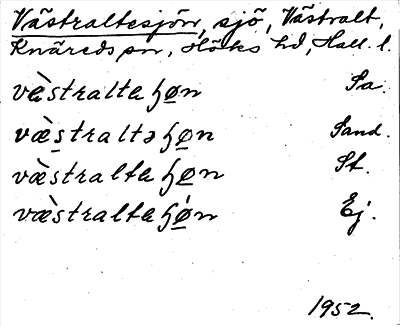 Västraltesjön, sjö, Västralt,
Knäreds sn, Höks hd, Hall. l.
væ̀straltaɧøn Sa.
væ̀straltəɧøn Sand.
væ̀straltaɧøn St.
væ̀straltaɧøn Ej.
1952.